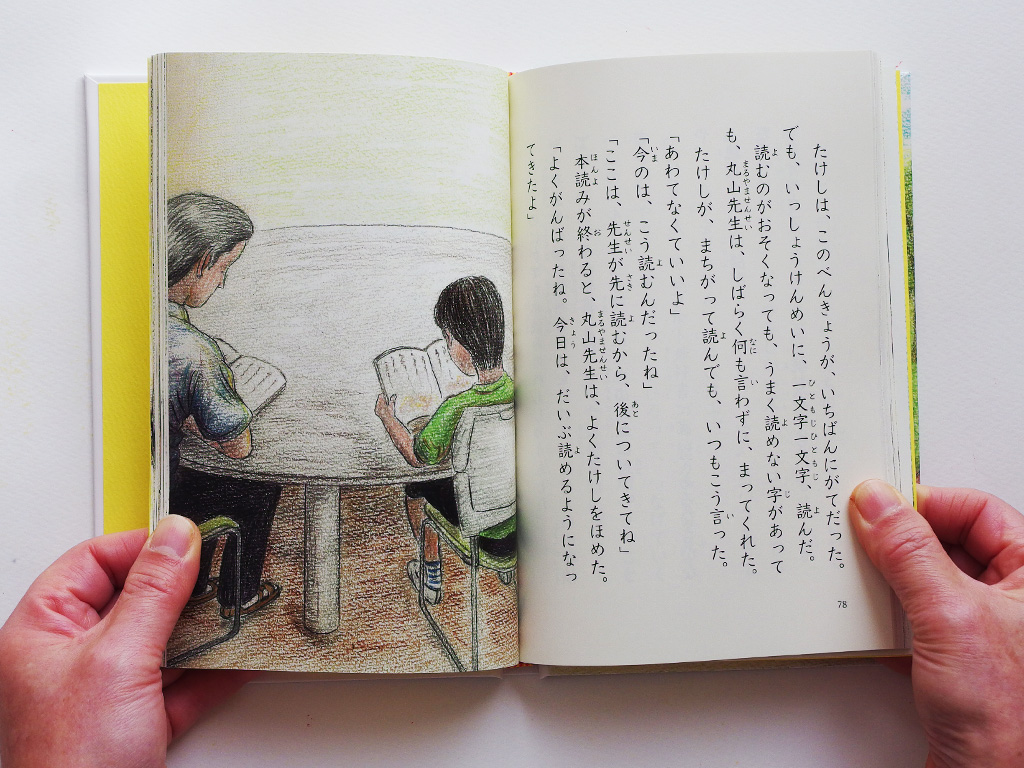 たけしは、このべんきょうが、いちばんにがてだった。
でも、いっしょうけんめいに、一文字一文字、読んだ。
読むのがおそくなっても、うまく読めない字があって
も、丸山先生は、しばらく何も言わずに、まってくれた。
たけしが、まちがって読んでも、いつもこう言った。
「あわてなくていいよ」
「今のは、こう読むんだったね」
「ここは、先生が先に読むから、後についてきてね」
本読みが終わると、丸山先生は、よくたけしをほめた。
「よくがんばったね。今日は、だいぶ読めるようになっ
てきたよ」
78